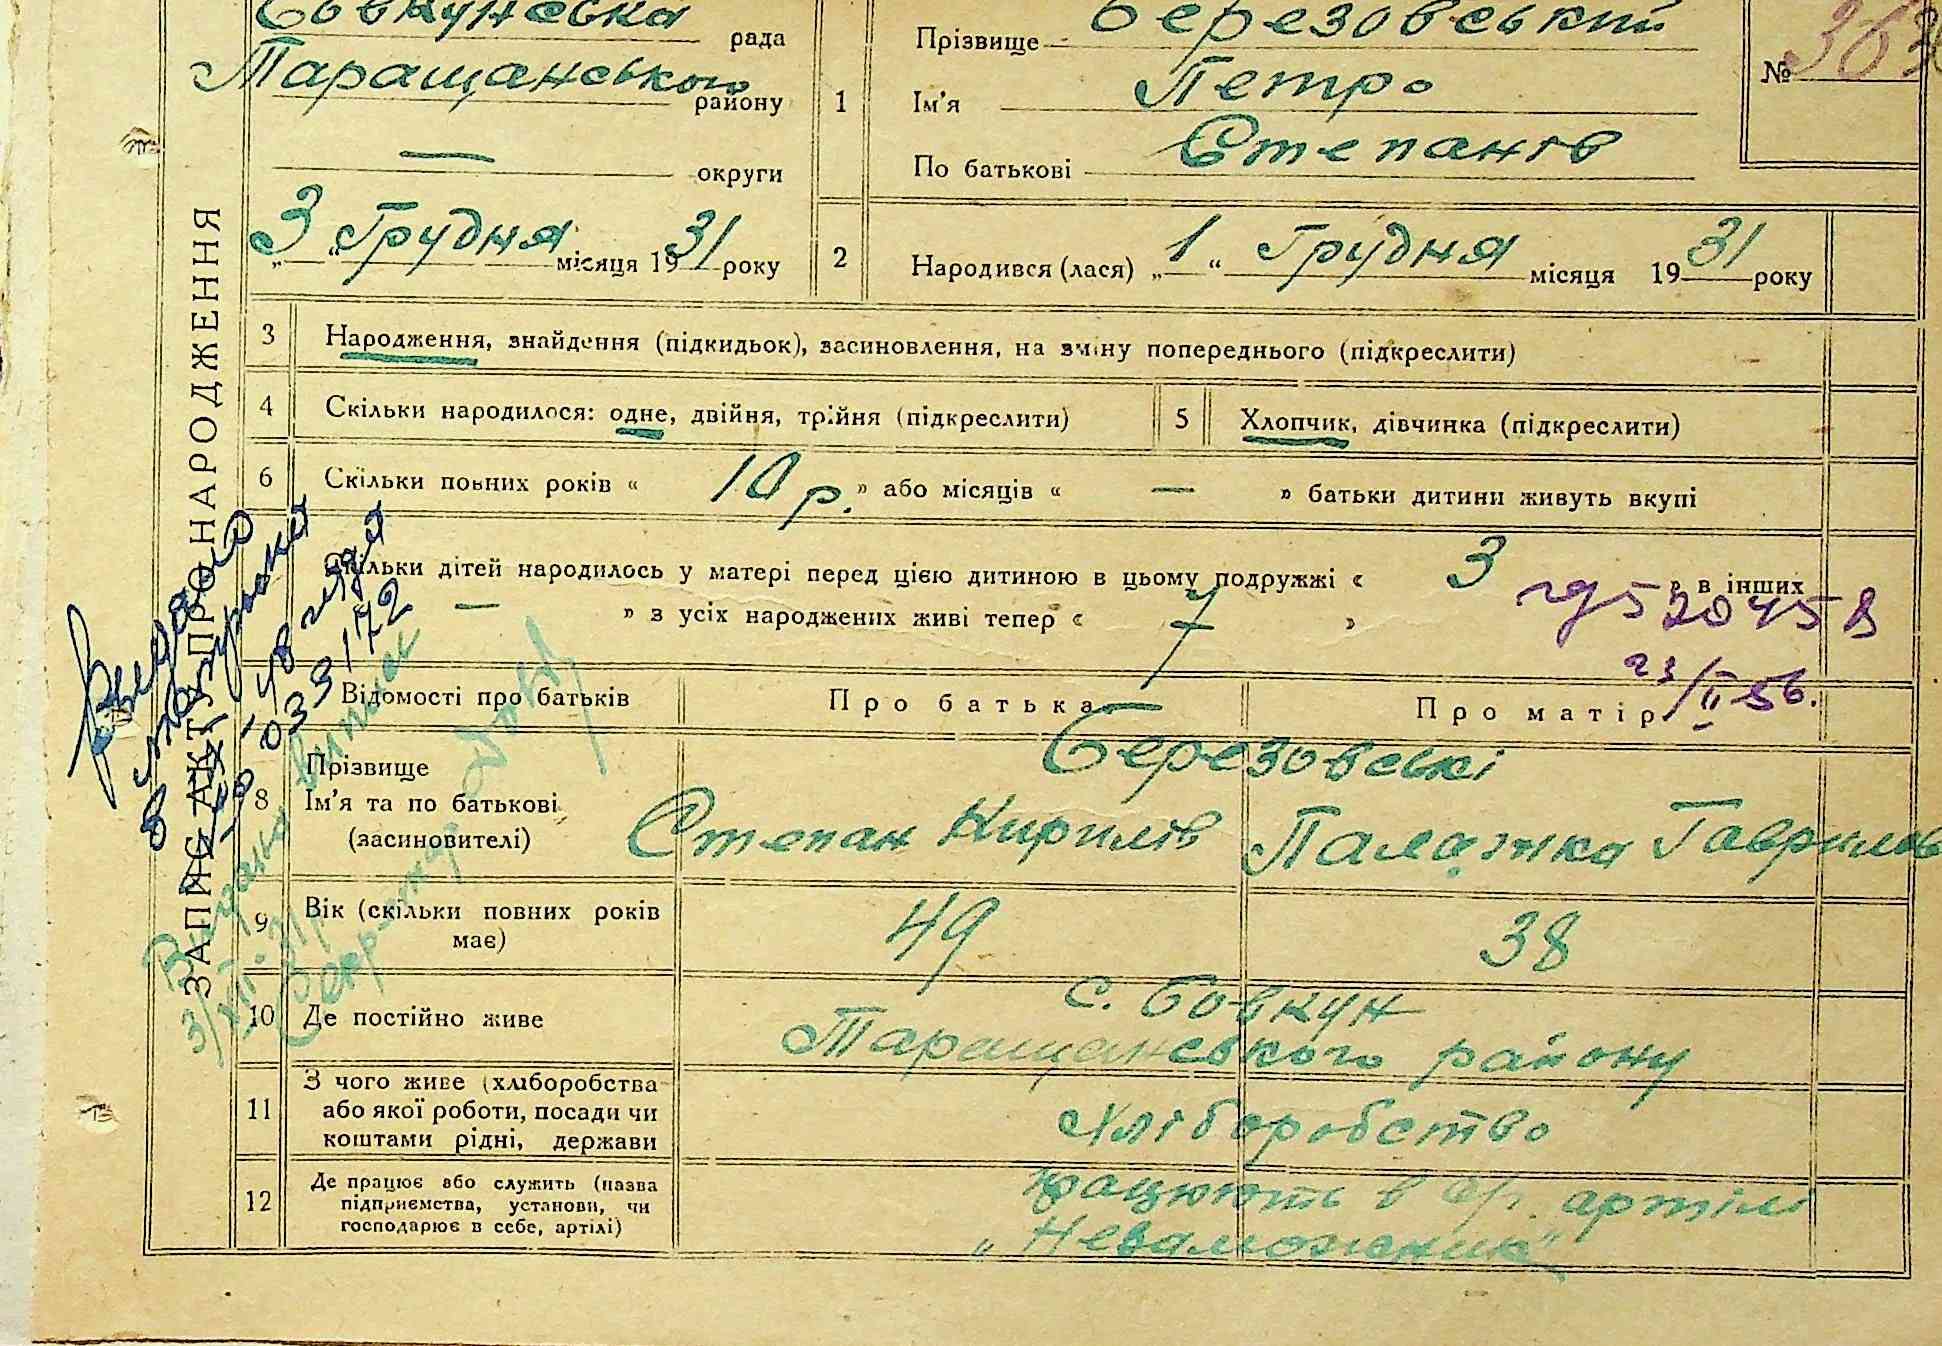 Бовкунівська рада
Таращанського району
— округи
„3“ Грудня місяця 1931 року
ЗАПИС АКТУ ПРО НАРОДЖЕННЯ
1 Прізвище Березовський
Ім'я Петро
По батькові Степанів
№ 36
2 Народився (лася) „1“ Грудня місяця 1931 року
3 Народження, знайдення (підкидьок), засиновлення, на зміну попереднього (підкреслити)
4 Скільки народилося: одне, двійня, трійня (підкреслити)
5 Хлопчик, дівчинка (підкреслити)
6 Скільки повних років « 10 р. » або місяців « — » батьки дитини живуть вкупі
Скільки дітей народилось у матері перед цією дитиною в цьому подружжі « 3 » в інших
— » з усіх народжених живі тепер « »
520458
23/II 56.
Видано
в
033172
Відомості про батьків
Про батька
Про матір
8 Прізвище
Ім'я та по батькові
(засиновителі)
Березовські
Степан Кирилів
Палажка Гаврилов
9 Вік (скільки повних років
має)
49
38
10 Де постійно живе
с. Бовкун
Таращанського району
11 З чого живе (хліборобства
або якої роботи, посади чи
коштами рідні, держави
Хліборобство
12 Де працює або служить (назва
підприємства, установи, чи
господарює в себе, артілі)
працюють в с/г. артілі
„Незаможник“
Видано випис
3/XII-31р.